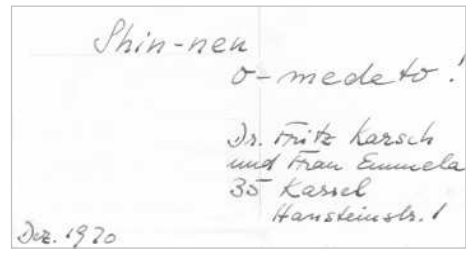 Shin-nen
o-medeto!
Dr. Fritz Karsch
und Frau Emmela
35 Kassel
Hansteinstr. 1
Dez. 1970